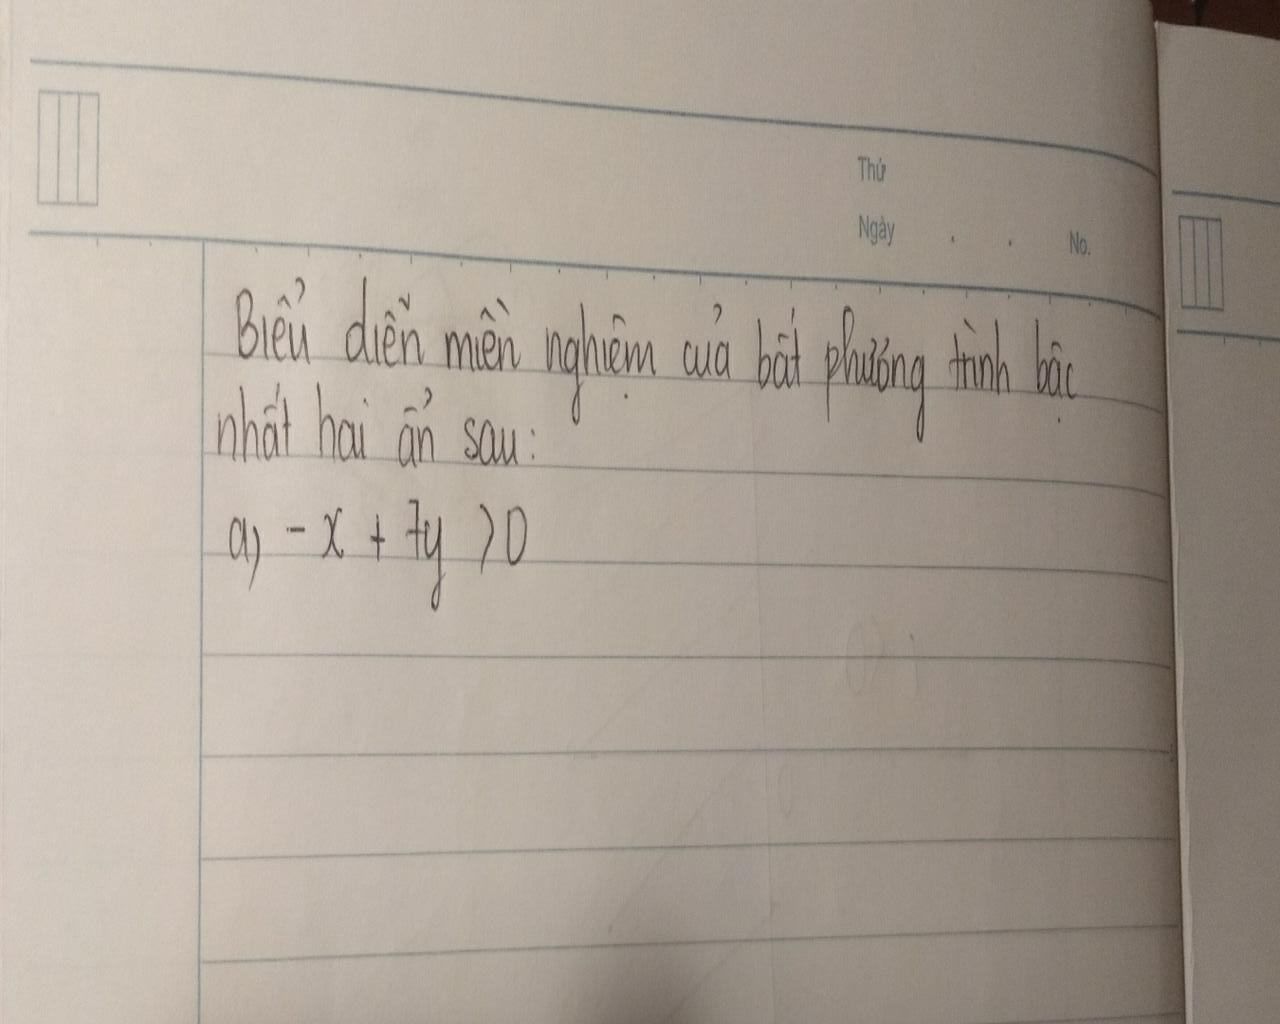 Thứ
Ngày . . No.
Biểu diễn miền nghiệm của bất phương trình bậc
nhất hai ẩn sau:
a) - x + 7y > 0